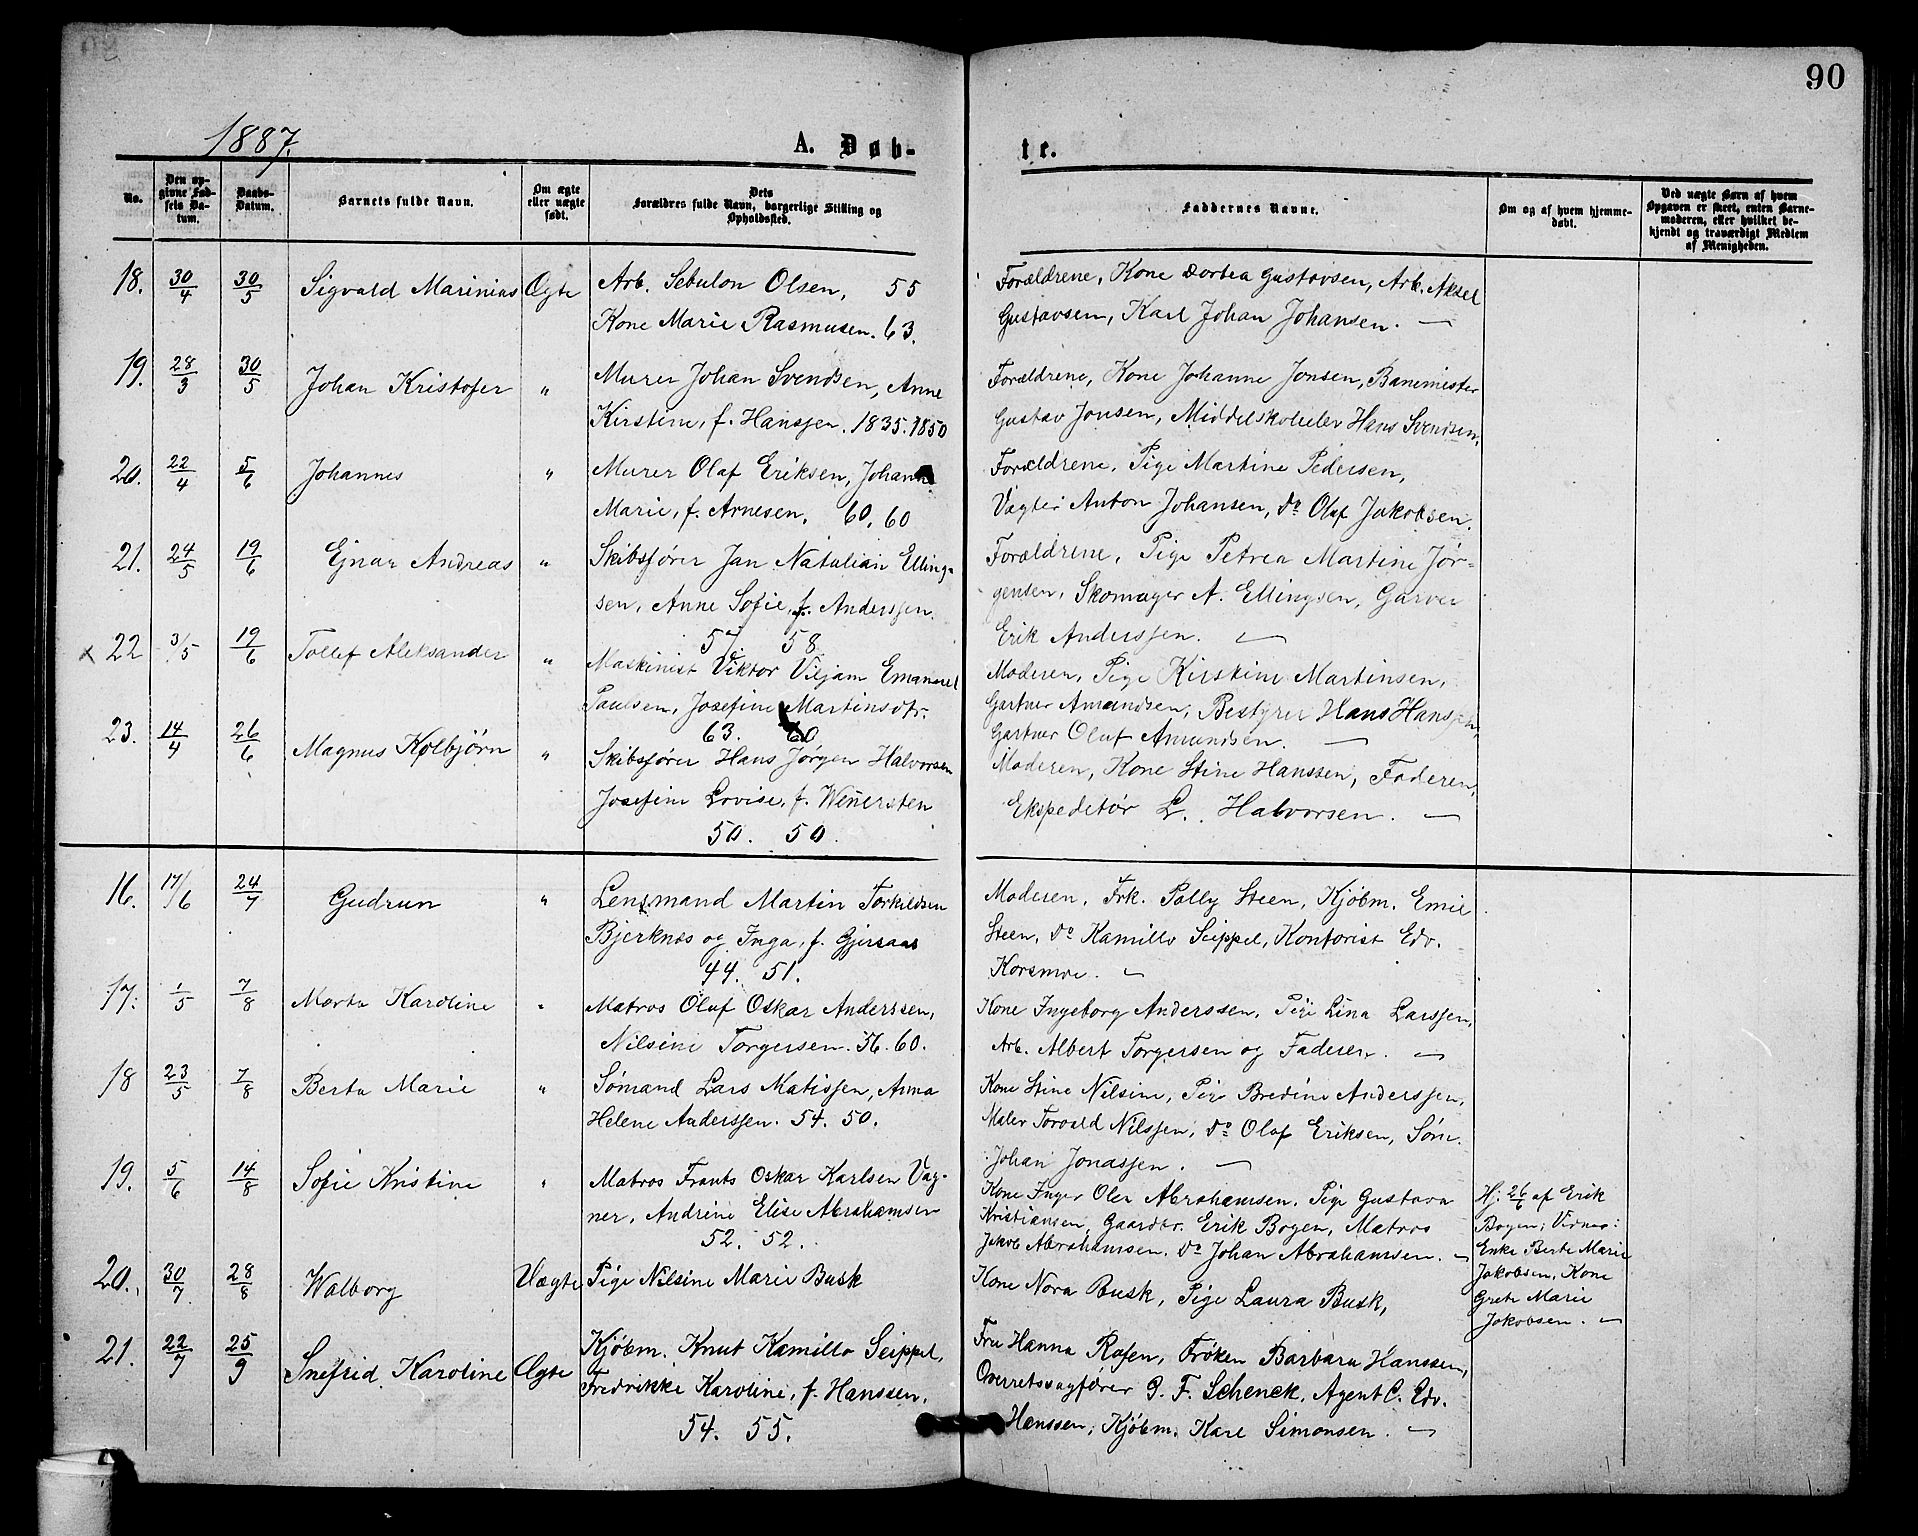 90
1887.
A. Døb-
te.
No.
Den op-
givne Fød-
sels Da-
tum.
Daabs-
Datum.
Barnets fulde Navn.
Om ægte
eller uægte
født.
Dets
Forældres fulde Navn, borgerlige Stilling og
Opholdssted.
Faddernes Navne.
Om og af hvem hjemme-
døbt.
Ved uægte Børn af hvem
Opgaven er skeet, enten Barne-
moderen, eller hvilket be-
kjendt og troværdigt Medlem
af Menigheden.
18. 30/4 30/5 Sigvald Marinius Ægte Arb. Sebulon Olsen, 55
Kone Marie Rasmusen. 63.
Forældrene, Kone Dortea Gustavsen, Arb. Aksel
Gustavsen, Karl Johan Johansen. —
19. 28/3 30/5 Johan Kristofer " Murer Johan Svendsen, Anne
Kirstine, f. Hanssen. 1835. 1850
Forældrene, Kone Johanne Jonsen, Banemester
Gustav Jonsen, Middelskoleelev Hans Svendsen,
20. 22/4 5/6 Johannes " Murer Olaf Eriksen, Johanne
Marie, f. Arnesen. 60. 60
Forældrene, Pige Martine Pedersen,
Vægter Anton Johansen, Do Olaf Jakobsen.
21. 24/5 19/6 Ejnar Andreas " Skibsfører Jan Natalian Elling-
sen, Anne Sofie, f. Anderssen.
57 58
Forældrene, Pige Petrea Martine Jør-
gensen, Skomager A. Ellingsen, Garver
Erik Anderssen. —
x 22 3/5 19/6 Tollef Aleksander " Maskinist Viktor Viljam Emanuel
Paulsen, Josefine Martinsdtr.
63. 60
Moderen, Pige Kirstine Martinsen,
Gartner Amundsen, Bestyrer Hans Hanssen,
Gartner Oluf Amundsen. —
23. 14/4 26/6 Magnus Kolbjørn " Skibsfører Hans Jørgen Halvorsen
Josefine Lovise, f. Wenersten
50. 50.
Moderen, Kone Stine Hanssen, Faderen,
Ekspeditør L. Halvorsen. —
16. 17/6 24/7 Gudrun " Lensmand Martin Torkildsen
Bjerknæs og Inga, f.
44. 51.
Moderen, Frk. Polly Steen, Kjøbm. Emil
Steen, Do Kamillo Seippel, Kontorist Edv.
Korsmoe. —
17. 1/5 7/8 Marta Karoline " Matros Oluf Oskar Anderssen,
Nilsine Torgersen. 56. 60.
Kone Ingeborg Anderssen, Pige Lina Larssen,
Arb. Albert Torgersen og Faderen. —
18 23/5 7/8 Berta Marie " Sømand Lars Matissen, Anna
Helene Anderssen. 54. 50.
Kone Stine Nilsine, Pige Bredine Anderssen,
Maler Torvald Nilssen, Do Olaf Eriksen, Søm.
Johan Jonassen. —
19. 5/6 14/8 Sofie Kristine " Matros Frants Oskar Karlsen Vag-
ner, Andrine Elise Abrahamsen
52. 52.
Kone Inger Olea Abrahamsen, Pige Gustava
Kristiansen, Gaardbr. Erik Bogen, Matros
Jakob Abrahamsen, Do Johan Abrahamsen. —
Hj. 26/6 af Erik
Bogen; Vidner:
Enke Berte Marie
Jakobsen, Kone
Grete Marie
Jakobsen. —
20. 30/7 28/8 Walborg Uægte Pige Nilsine Marie Busk
Kone Nora Busk, Pige Laura Busk,
21. 22/7 25/9 Snefrid Karoline Ægte Kjøbm. Knut Kamillo Seippel,
Fredrikke Karoline, f. Hanssen,
54. 55.
Fru Hanna Rosen, Frøken Barbara Hanssen,
Overretssagfører G. F. Schenck, Agent C. Edv.
Hanssen, Kjøbm. Karl Simonsen. —